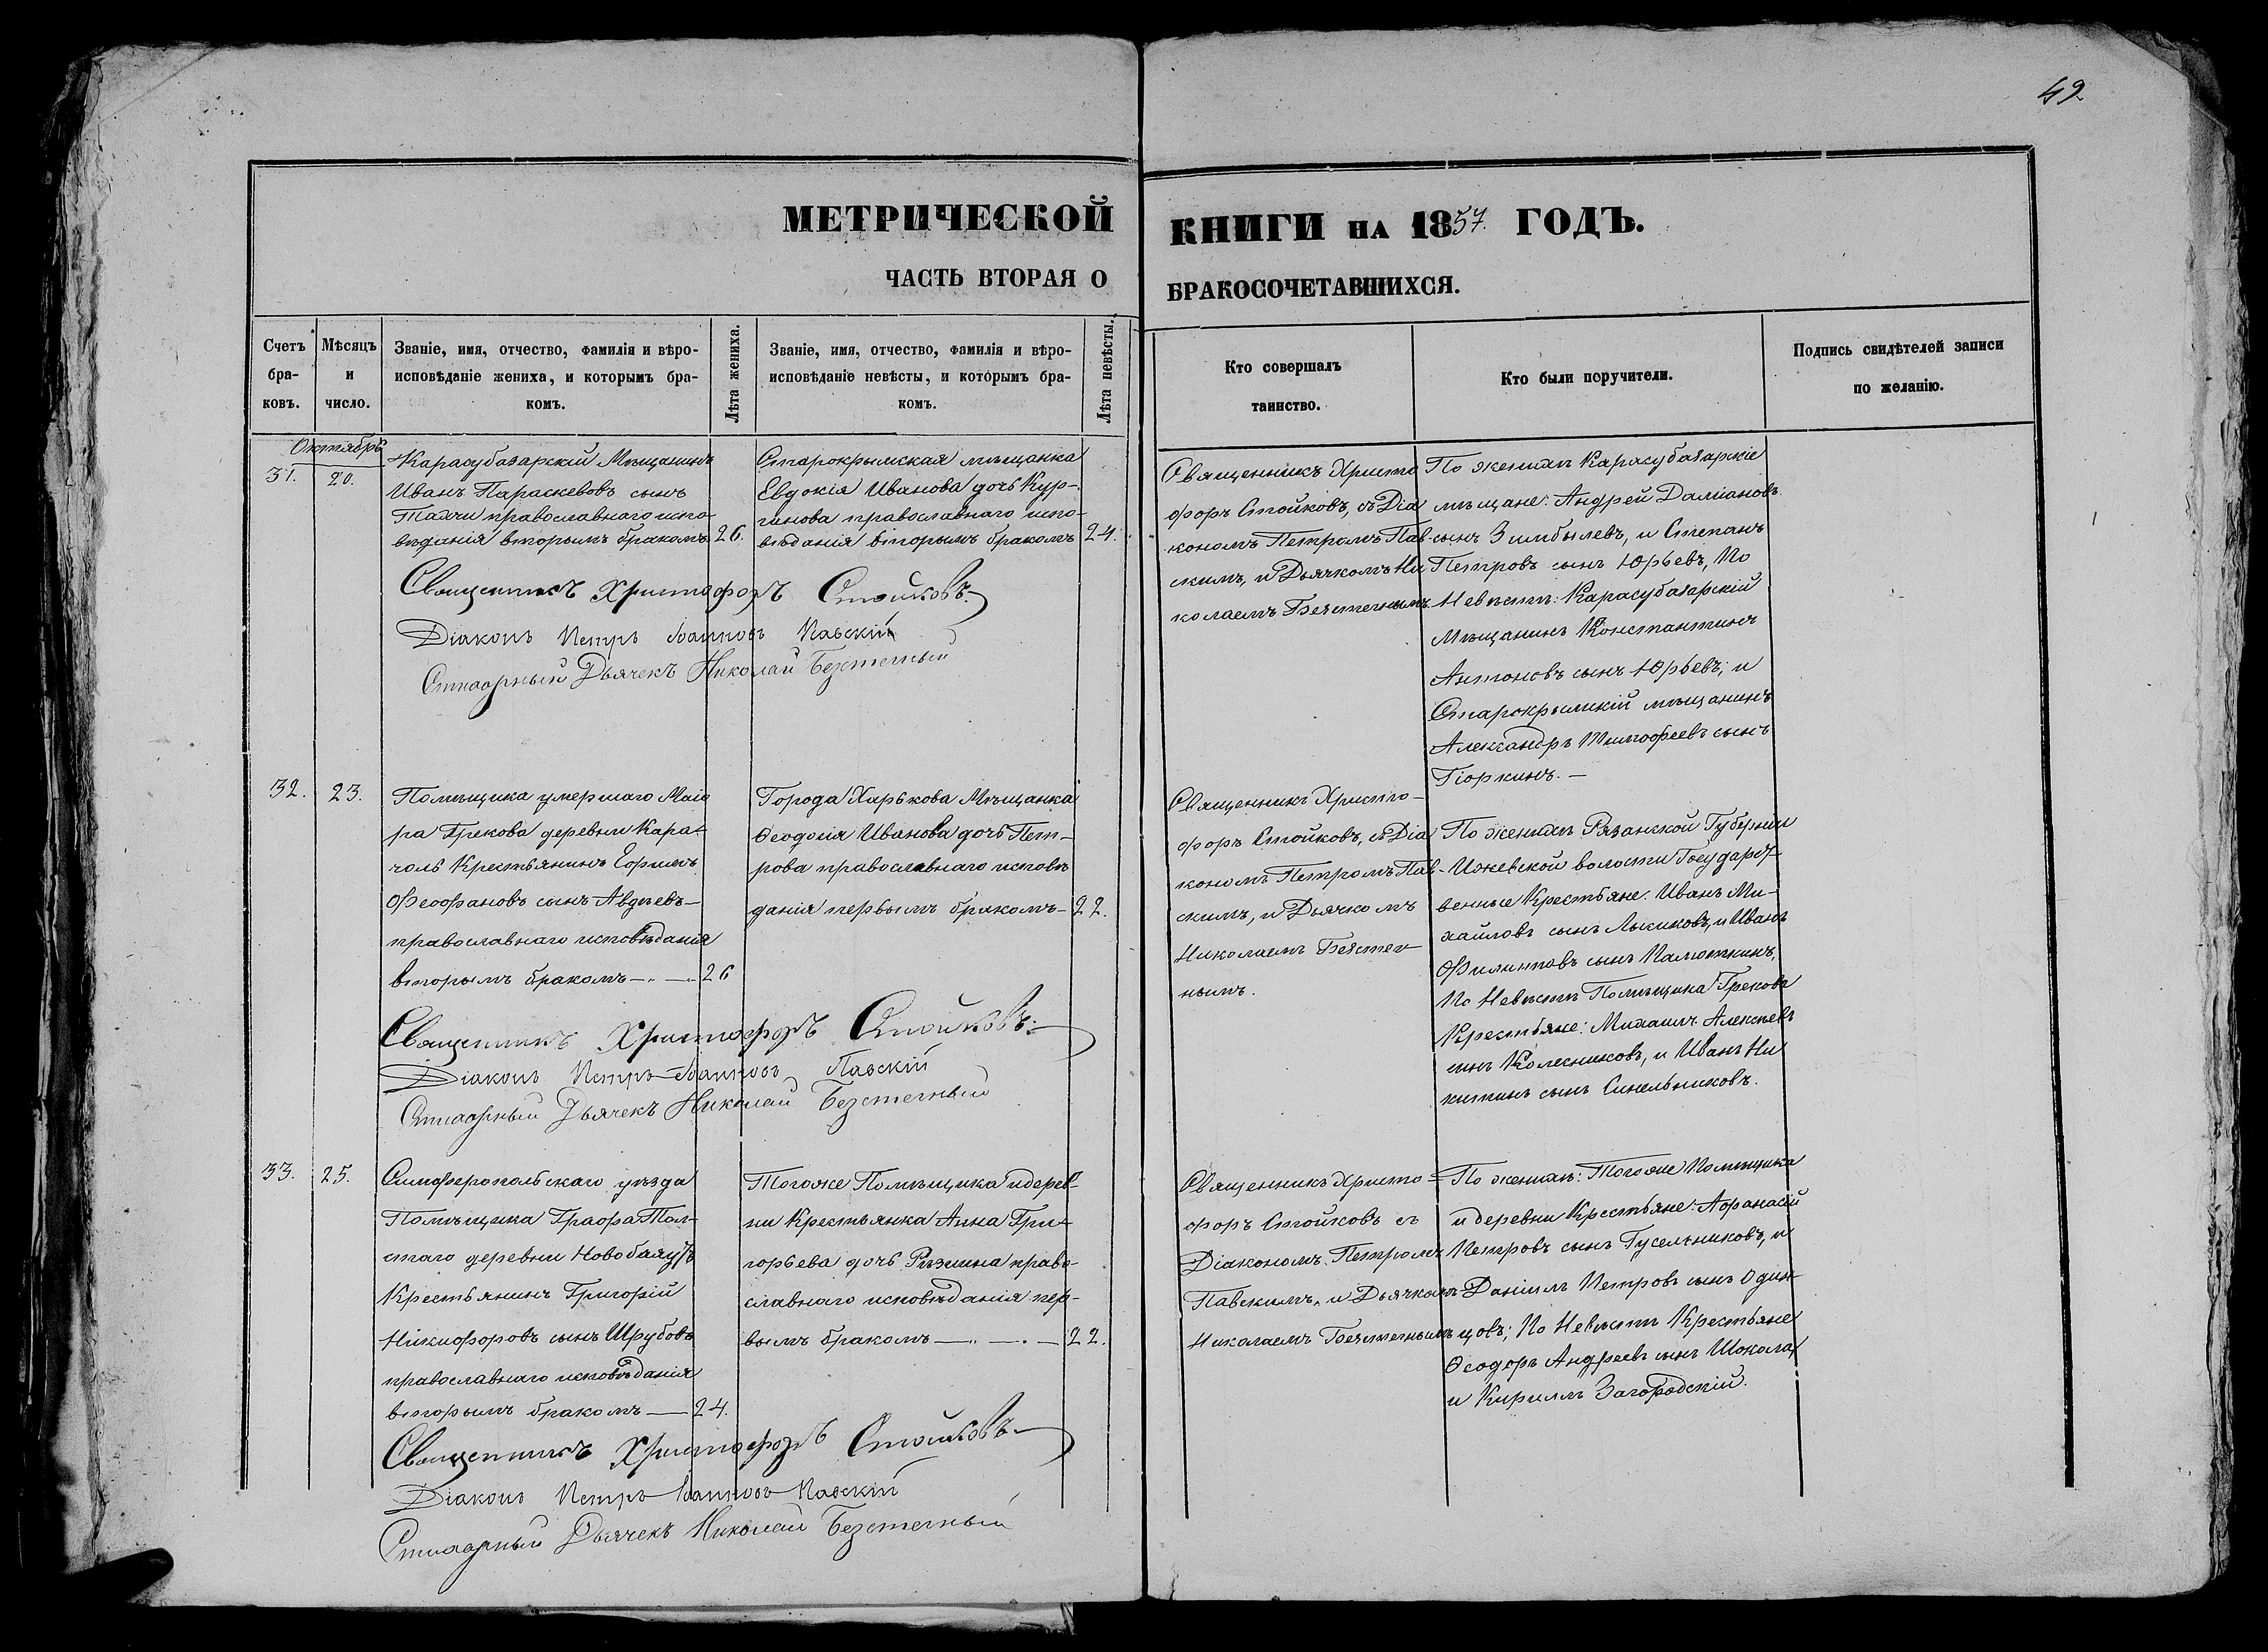 49
МЕТРИЧЕСКОЙ КНИГИ НА 1857. ГОДЪ.
ЧАСТЬ ВТОРАЯ О БРАКОСОЧЕТАВШИХСЯ.
Счетъ
бра-
ковъ.
Мѣсяцъ
и
число.
Званіе, имя, отчество, фамилія и вѣро-
исповѣданіе жениха, и которымъ бра-
комъ.
Лѣта жениха.
Званіе, имя, отчество, фамилія и вѣро-
исповѣданіе невѣсты, и которымъ бра-
комъ.
Лѣта невѣсты.
Кто совершалъ
таинство.
Кто были поручители.
Подпись свидѣтелей записи
по желанію.
Октябрь
31.
20.
Карасубазарскій Мѣщанинъ
Иванъ Параскевовъ сынъ
православнаго испо-
вѣданія вторымъ бракомъ
26.
Старокрымская мѣщанка
Евдокія Иванова дочь Кур-
гинова православнаго испо-
вѣданія вторымъ бракомъ
24.
Священникъ Христо
форъ Стойковъ, съ Діа
кономъ Петромъ Пав-
скимъ, и Дьячкомъ Ни
колаемъ Безстечнымъ
По женихѣ Карасубазарскіе
мѣщане: Андрей Даміановъ
сынъ Зимбылевъ, и Степанъ
Петровъ сынъ Юрьевъ, По
Невѣстѣ: Карасубазарскій
Мѣщанинъ Константинъ
Антоновъ сынъ Юрьевъ; и
Старокрымскій мѣщанинъ
Александръ Тимофеевъ сынъ
Гіоркинъ. —
Священникъ Христофоръ Стойковъ.
Діаконъ Петръ Іоанновъ Павскій
Стихарный Дьячекъ Николай Безстечный
32.
23.
Помѣщика умершаго Маіо
ра Грекова деревни Кара-
чоль Крестьянинъ Ефимъ
Феофановъ сынъ Авдѣевъ —
православнаго исповѣданія
вторымъ бракомъ —
26
Города Харькова Мѣщанка
Ѳеодосія Иванова дочь Пет-
рова православнаго исповѣ
данія первымъ бракомъ —
22.
Священникъ Христо-
форъ Стойковъ, съ Діа
кономъ Петромъ Пав-
скимъ, и Дьячкомъ
Николаемъ Безстеч
нымъ.
По женихѣ Рязанской Губерніи
Ижевской волости Государст-
венные Крестьяне: Иванъ Ми-
хайловъ сынъ Лысиковъ, и Иванъ
Филиповъ сынъ Палюткинъ,
По Невѣстѣ Помѣщика Грекова
Крестьяне: Михаилъ Алексѣевъ
сынъ Колесниковъ, и Иванъ Ни
китинъ сынъ Синельниковъ.
Священникъ Христофоръ Стойковъ.
Діаконъ Петръ Іоанновъ Павскій
Стихарный Дьячекъ Николай Безстечный
33.
25.
Симферопольскаго уѣзда
Помѣщика Графа Тол-
стаго деревни Новобаяутъ
Крестьянинъ Григорій
Никифоровъ сынъ Шрубовъ
православнаго исповѣданія
вторымъ бракомъ —
24.
Тогоже Помѣщика и дерев-
ни Крестьянка Анна Гри-
горьева дочь Рѣзшина право-
славнаго исповѣданія пер-
вымъ бракомъ —
22.
Священникъ Христо-
форъ Стойковъ съ
Діакономъ Петромъ
Павскимъ, и Дьячкомъ
Николаемъ Безстечнымъ
По женихѣ: Тогоже Помѣщика
и деревни Крестьяне: Афанасій
Петровъ сынъ Гусельниковъ, и
Даніилъ Петровъ сынъ Один-
цовъ; По Невѣстѣ Крестьяне
Ѳеодоръ Андреевъ сынъ Шокола
и Кирилъ Загородскій.
Священникъ Христофоръ Стойковъ
Діаконъ Петръ Іоанновъ Павскій
Стихарный Дьячекъ Николай Безстечный